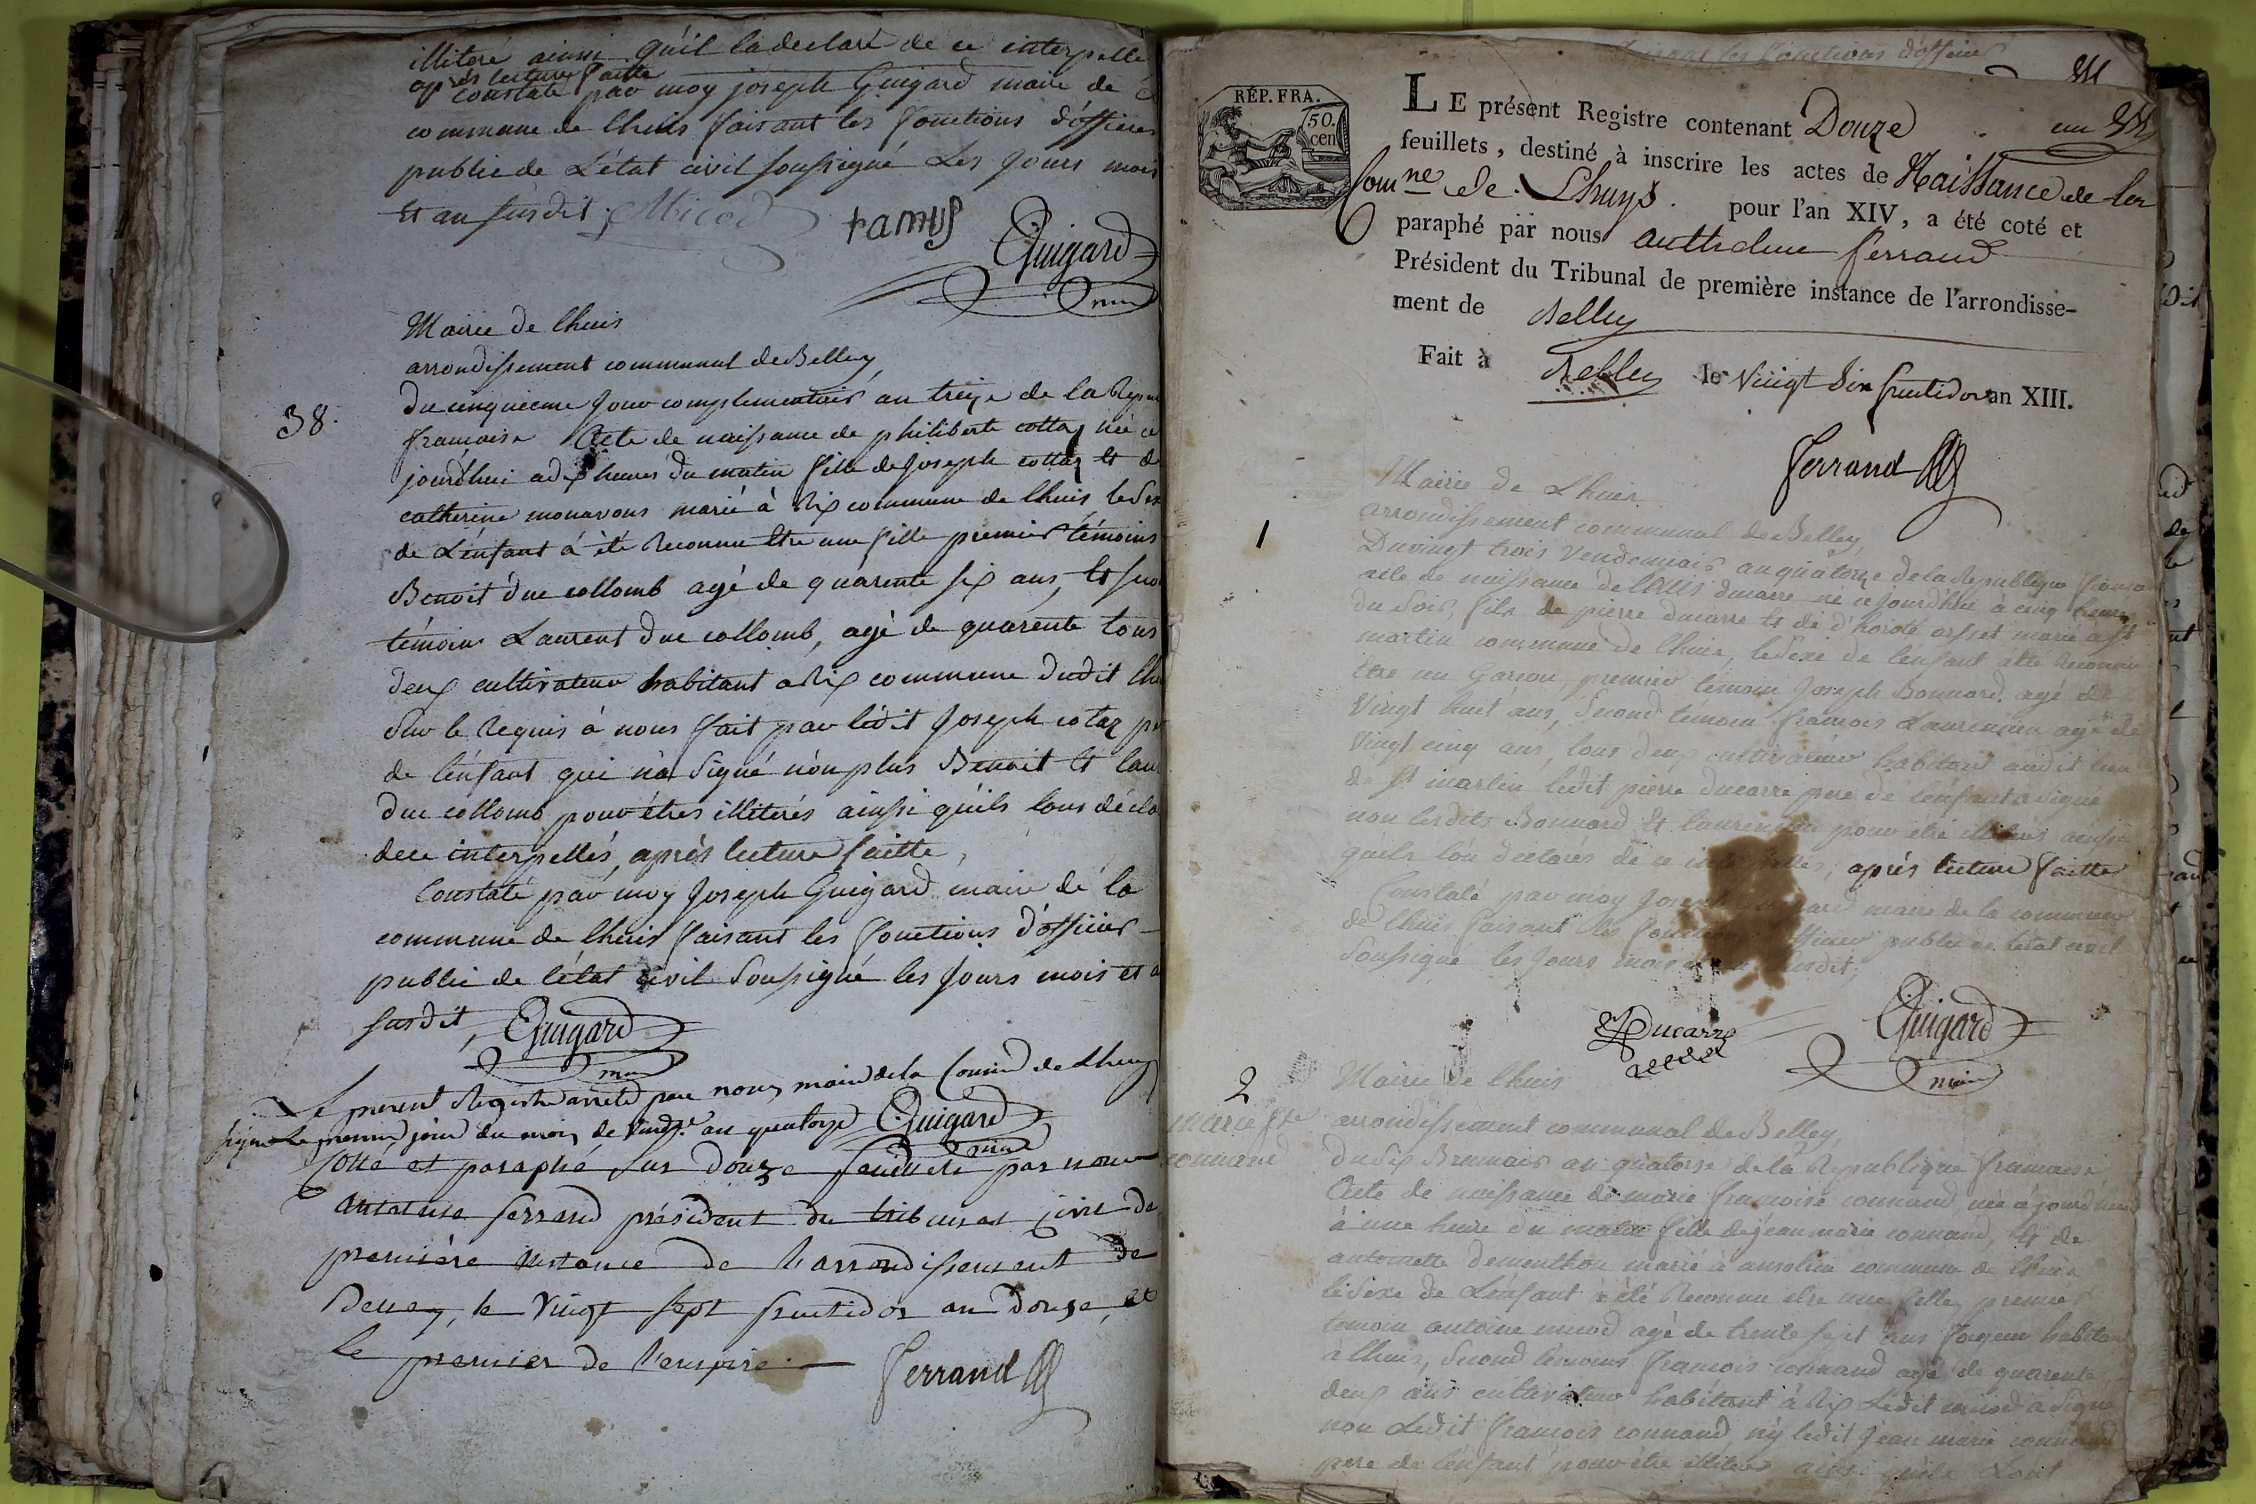 illiteré ainsi qu'il la declaré de ce interpellé
après lecture faitte
constaté par moy joseph Guigard maire de
commune de lhuis faisant les fonctions d'officier
public de L'état civil soussigné Les jours mois
et an susdit Micod ramus
Guigard
maire
Mairie de lhuis
arrondissement communal de Belley,
38.
Du cinquieme jour complementaire an treize de la
francaise Acte de naissance de philiberte cottaz née
jourd'hui a dix heures du matin fille de Joseph cottaz et de
catherine monavous marié à Rix commune de lhuis le sexe
de L'enfant à été Reconnu être une fille premier témoins
Benoit duc collomb agé de quarente six ans, et
témoin Laurent duc collomb, agé de quarente tous
deux cultivateur habitant a Rix commune dudit
Sur le Requis à nous fait par ledit Joseph cotaz
de l'enfant qui n'a signé non plus Benoit et
duc collomb pour êtres illiterés ainsi qu'ils l'ons
de ce interpellés, après lecture faitte,
Constaté par moy Joseph Guigard maire de la
commune de lhuis faisant les fonctions d'officier
public de l'état civil soussigné les jours mois et
susdit, Guigard
maire
Le present Registre arreté par nous maire de la Commune de Lhuys
signé Le premier jour du mois de Vend.re an quatorze Guigard
maire
Cotté et paraphé sur douze feuillets par nous
Ferrand président du tribunal civil de
première instance de l'arrondissement de
Belley, le vingt sept fructidor an douze, et
le premier de l'empire.
Ferrand
RÉP. FRA.
50.
cen
LE présent Registre contenant Douze
feuillets, destiné à inscrire les actes de Naissance de la
Comne de Lhuys. pour l'an XIV, a été coté et
paraphé par nous Anthelme Ferrand
Président du Tribunal de première instance de l'arrondisse-
ment de Belley
Fait à Belley le vingt six fructidor an XIII.
Ferrand
Mairie de Lhuis
1
arrondissement communal de Belley,
Du vingt trois vendemiair an quatorze de la Republique
acte de naissance de Louis ducarre né cejourd'hui à cinq heures
du soir, fils de pierre ducarre et de marié a St
martin commune de lhuis, le sexe de l'enfant à été Reconnu
être un Garcon, premier témoin Joseph Bonnard agé de
Vingt huit ans, second témoin francois Laurencin agé de
Vingt cinq ans, tous deux cultivateur habitant audit lieu
de St martin ledit pierre ducarre pere de l'enfant a signé
non lesdits Bonnard et laurencin pour être illiterés ainsi
quils l'on déclarés de ce interpellés, après lecture faitte
Constaté par moy Joseph Guigard maire de la commune
de lhuis faisant les fonctions d'officier public de l'état civil
soussigné les jours mois et an susdit,
Ducarre
Guigard
maire
2
Mairie de lhuis
marie fse
connand
arrondissement communal de Belley,
du six Brumair an quatorze de la Republique francaise
Acte de naissance de marie francoise connand née
à une heure du matin fille de jean marie connand, et de
antoinette dementhon marié à ansolin commune de lhuis
le sexe de L'enfant à été Reconnu être une fille, premier
temoin antoine micod agé de trente sept ans habitant
a lhuis, second temoins francois connand agé de quarente
deux ans cultivateur habitant à Rix Ledit micod a signé
non Ledit francois connand ny ledit jean marie connand
pere de l'enfant pour être illiteré ainsi qu'ils L'ont